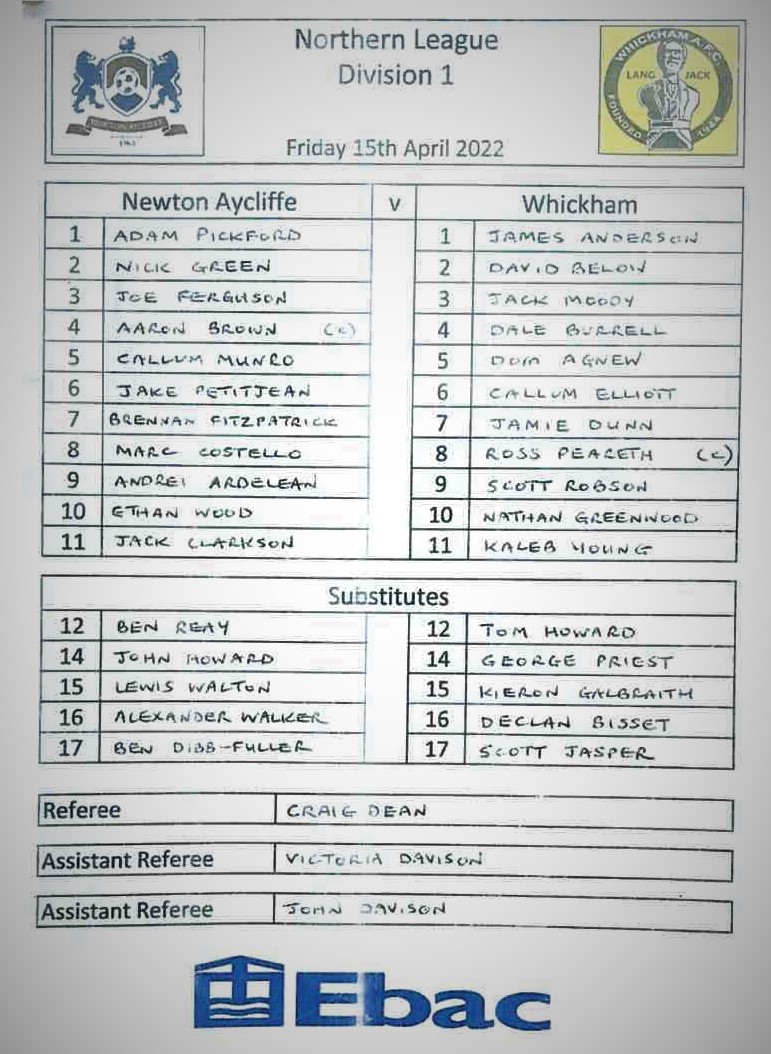 Northern League
Division 1
Friday 15th April 2022
WHICKHAM A.F.C.
LANG JACK
FOUNDED 1944
Newton Aycliffe v Whickham
1 ADAM PICKFORD 1 JAMES ANDERSON
2 NICK GREEN 2 DAVID BELOW
3 JOE FERGUSON 3 JACK MOODY
4 AARON BROWN (C) 4 DALE BURRELL
5 CALLUM MUNRO 5 DOM AGNEW
6 JAKE PETITJEAN 6 CALLUM ELLIOTT
7 BRENNAN FITZPATRICK 7 JAMIE DUNN
8 MARC COSTELLO 8 ROSS PEARETH (C)
9 ANDREI ARDELEAN 9 SCOTT ROBSON
10 ETHAN WOOD 10 NATHAN GREENWOOD
11 JACK CLARKSON 11 KALEB YOUNG
Substitutes
12 BEN REAY 12 TOM HOWARD
14 JOHN HOWARD 14 GEORGE PRIEST
15 LEWIS WALTON 15 KIERON GALBRAITH
16 ALEXANDER WALKER 16 DECLAN BISSET
17 BEN DIBB-FULLER 17 SCOTT JASPER
Referee CRAIG DEAN
Assistant Referee VICTORIA DAVISON
Assistant Referee JOHN DAVISON
Ebac